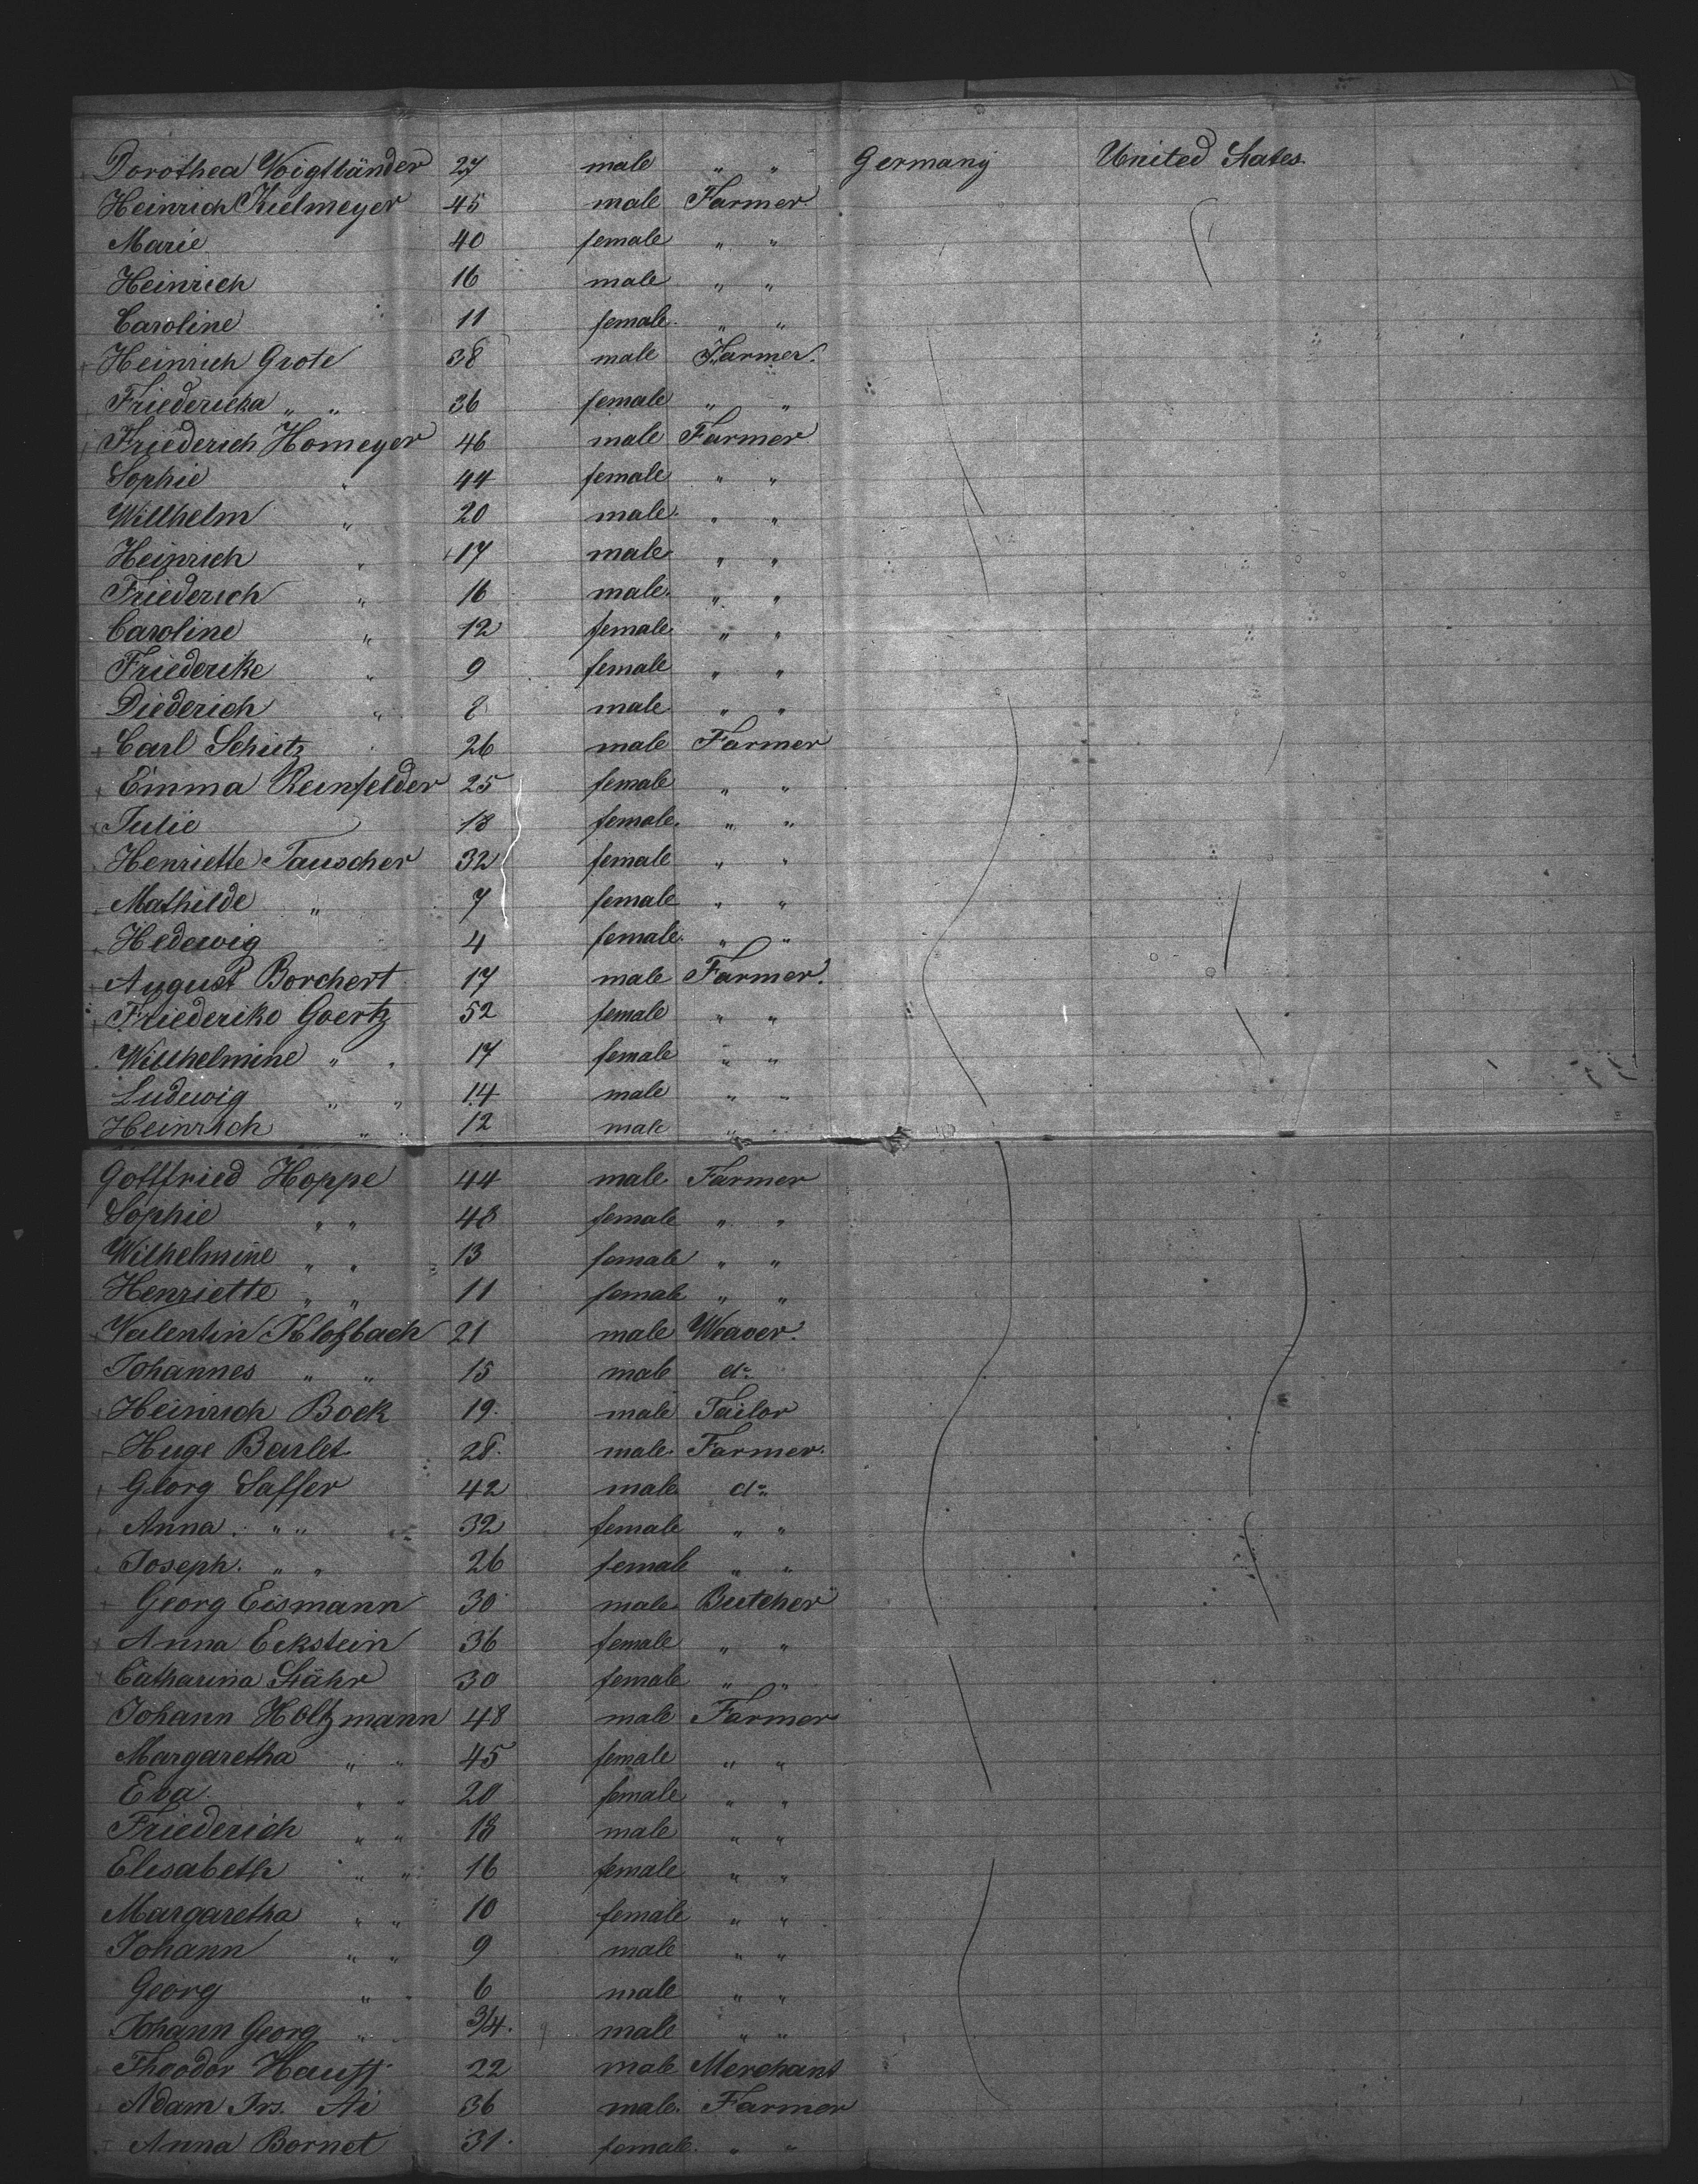 Dorothea Voigtländer 27 male " " Germany United States.
Heinrich Kielmeyer 45 male Farmer.
Marie 40 female " "
Heinrich 16 male " "
Caroline 11 female. " "
Heinrich Grote 38 male Farmer.
Friedericka " " 36 female " "
Friederich Homeyer 46 male Farmer
Sophie " 44 female " "
Willhelm " 20 male. " "
Heinrich " 17 male " "
Friederich " 16 male. " "
Caroline " 12 female " "
Friederike " 9 female " "
Diederich " 8 male " "
Carl Schütz 26 male Farmer
Emma Reinfelder 25 female " "
Julie 18 female. " "
Henriette Tauscher 32 female " "
Mathilde " 7 female " "
Hedewig 4 female. " "
August Borchert 17 male Farmer.
Friederike Goertz 52 female " "
Willhelmine " " 17 female " "
Ludewig " " 14 male " "
Heinrich " " 12 male " "
Gottfried Hoppe 44 male Farmer
Sophie " " 48 female " "
Wilhelmine " " 13 female " "
Henriette " " 11 female " "
Valentin Klotzbach 21 male Weaver.
Johannes " " 15 male do
Heinrich Bock 19. male Tailor
Huge Barlet 28. male. Farmer.
Georg Saffer 42 male do
Anna. " " 32 female " "
Joseph. " " 26 female " "
Georg Eismann 30 male Butcher
Anna Eckstein 36 female " "
Catharina Stähr 30 female " "
Johann Holtzmann 48 male Farmer
Margaretha " " 45 female " "
Eva. " " 20 female " "
Friederich " " 18 male " "
Elisabeth " " 16 female " "
Margaretha " " 10 female " "
Johann " " 9 male " "
Georg " " 6 male " "
Johann Georg " " 3/4. male " "
Theodor Hauff 22 male Merchant
Adam Frs. Ai 36 male. Farmer
Anna Bornet 31. female. " "